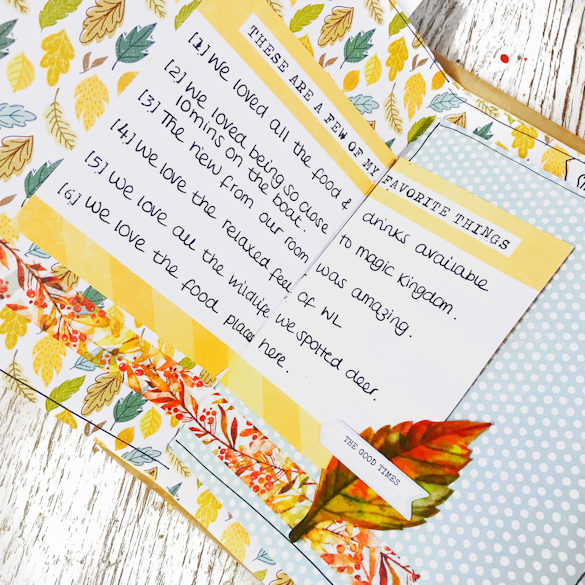 THESE ARE A FEW OF MY FAVORITE THINGS
[1] We loved all the food & drinks available
[2] We loved being so close to magic Kingdom.
10mins on the boat.
[3] The view from our room was amazing.
[4] We love the relaxed feel of WL
[5] We love all the wildlife, we spotted deer.
[6] We love the food places here.
THE GOOD TIMES